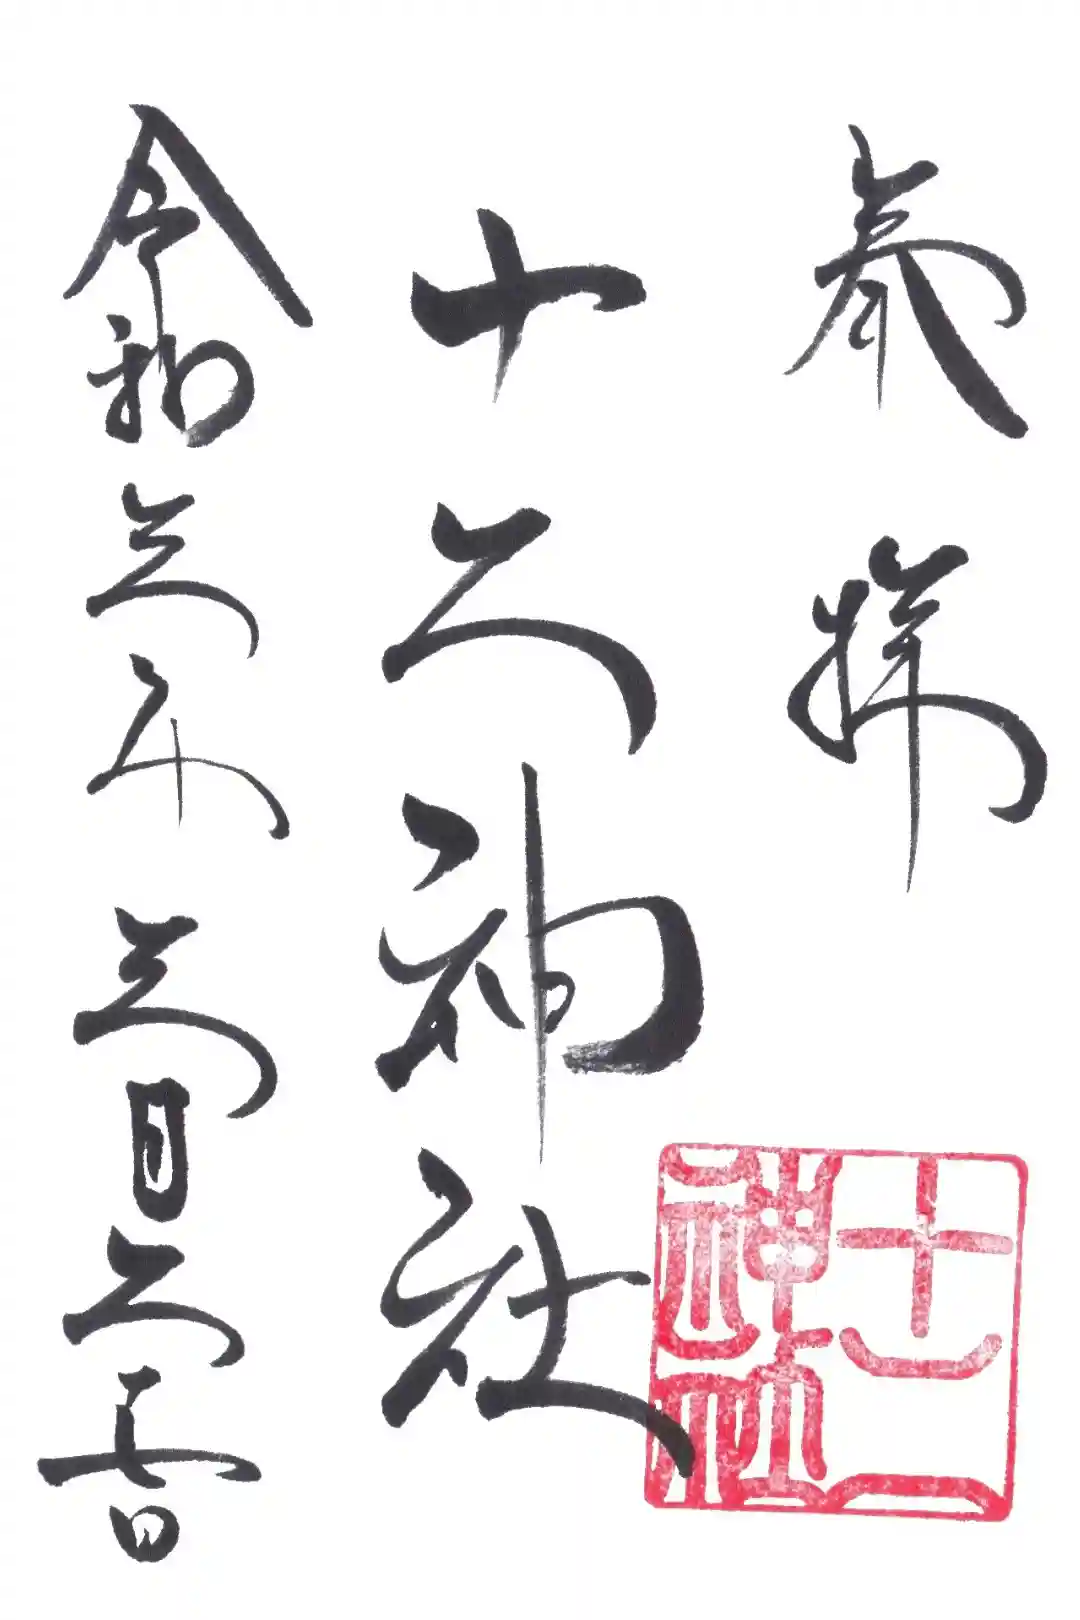 奉拝
十二神社
令和三年三月二日
十二
神社